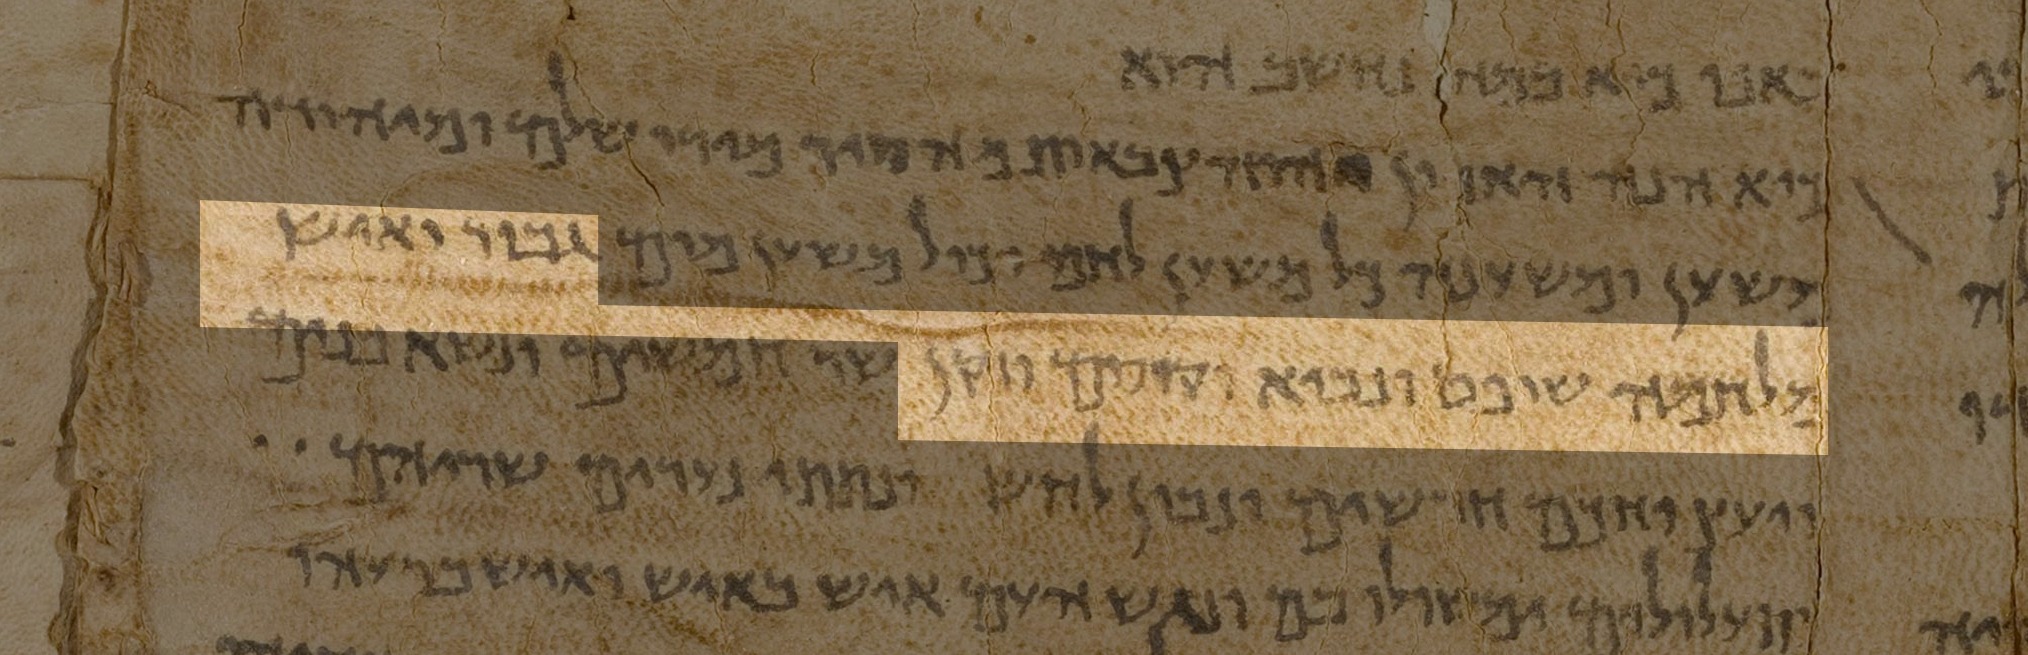 באפו כיא במה נחשב הוא
כיא הנה האדון יהוה צבאות מסיר מירושלים ומיהודה
משען ומשענה כל משען לחם וכול משען מים גבור ואיש
מלחמה שופט ונביא וקוסם וזקן שר חמשים ונשוא פנים
ויועץ וחכם חרשים ונבון לחש ונתתי נערים שריהם
ותעלולים ימשולו בם ונגש העם איש באיש ואיש ברעהו